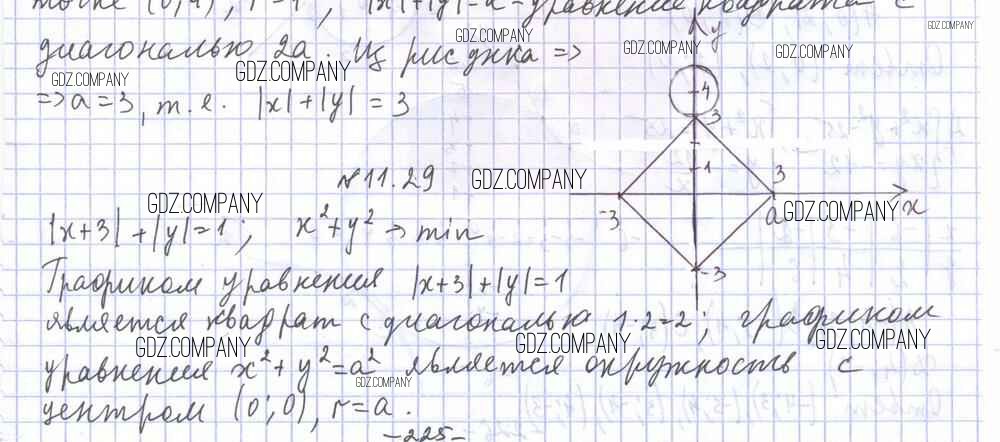 точке (0;4), r=1; |x|+|y|=a - уравнение квадрата с
диагональю 2a. Из рисунка =>
=> a=3, т.е. |x|+|y|=3
y
4
3
1
-3
3
a
x
-3
№11.29
|x+3|+|y|=1; x²+y² → min
Графиком уравнения |x+3|+|y|=1
является квадрат с диагональю 1·2=2; графиком
уравнения x²+y²=a² является окружность с
центром (0;0), r=a.
-225-
GDZ.COMPANY
GDZ.COMPANY
GDZ.COMPANY
GDZ.COMPANY
GDZ.COMPANY
GDZ.COMPANY
GDZ.COMPANY
GDZ.COMPANY
GDZ.COMPANY
GDZ.COMPANY
GDZ.COMPANY
GDZ.COMPANY
GDZ.COMPANY